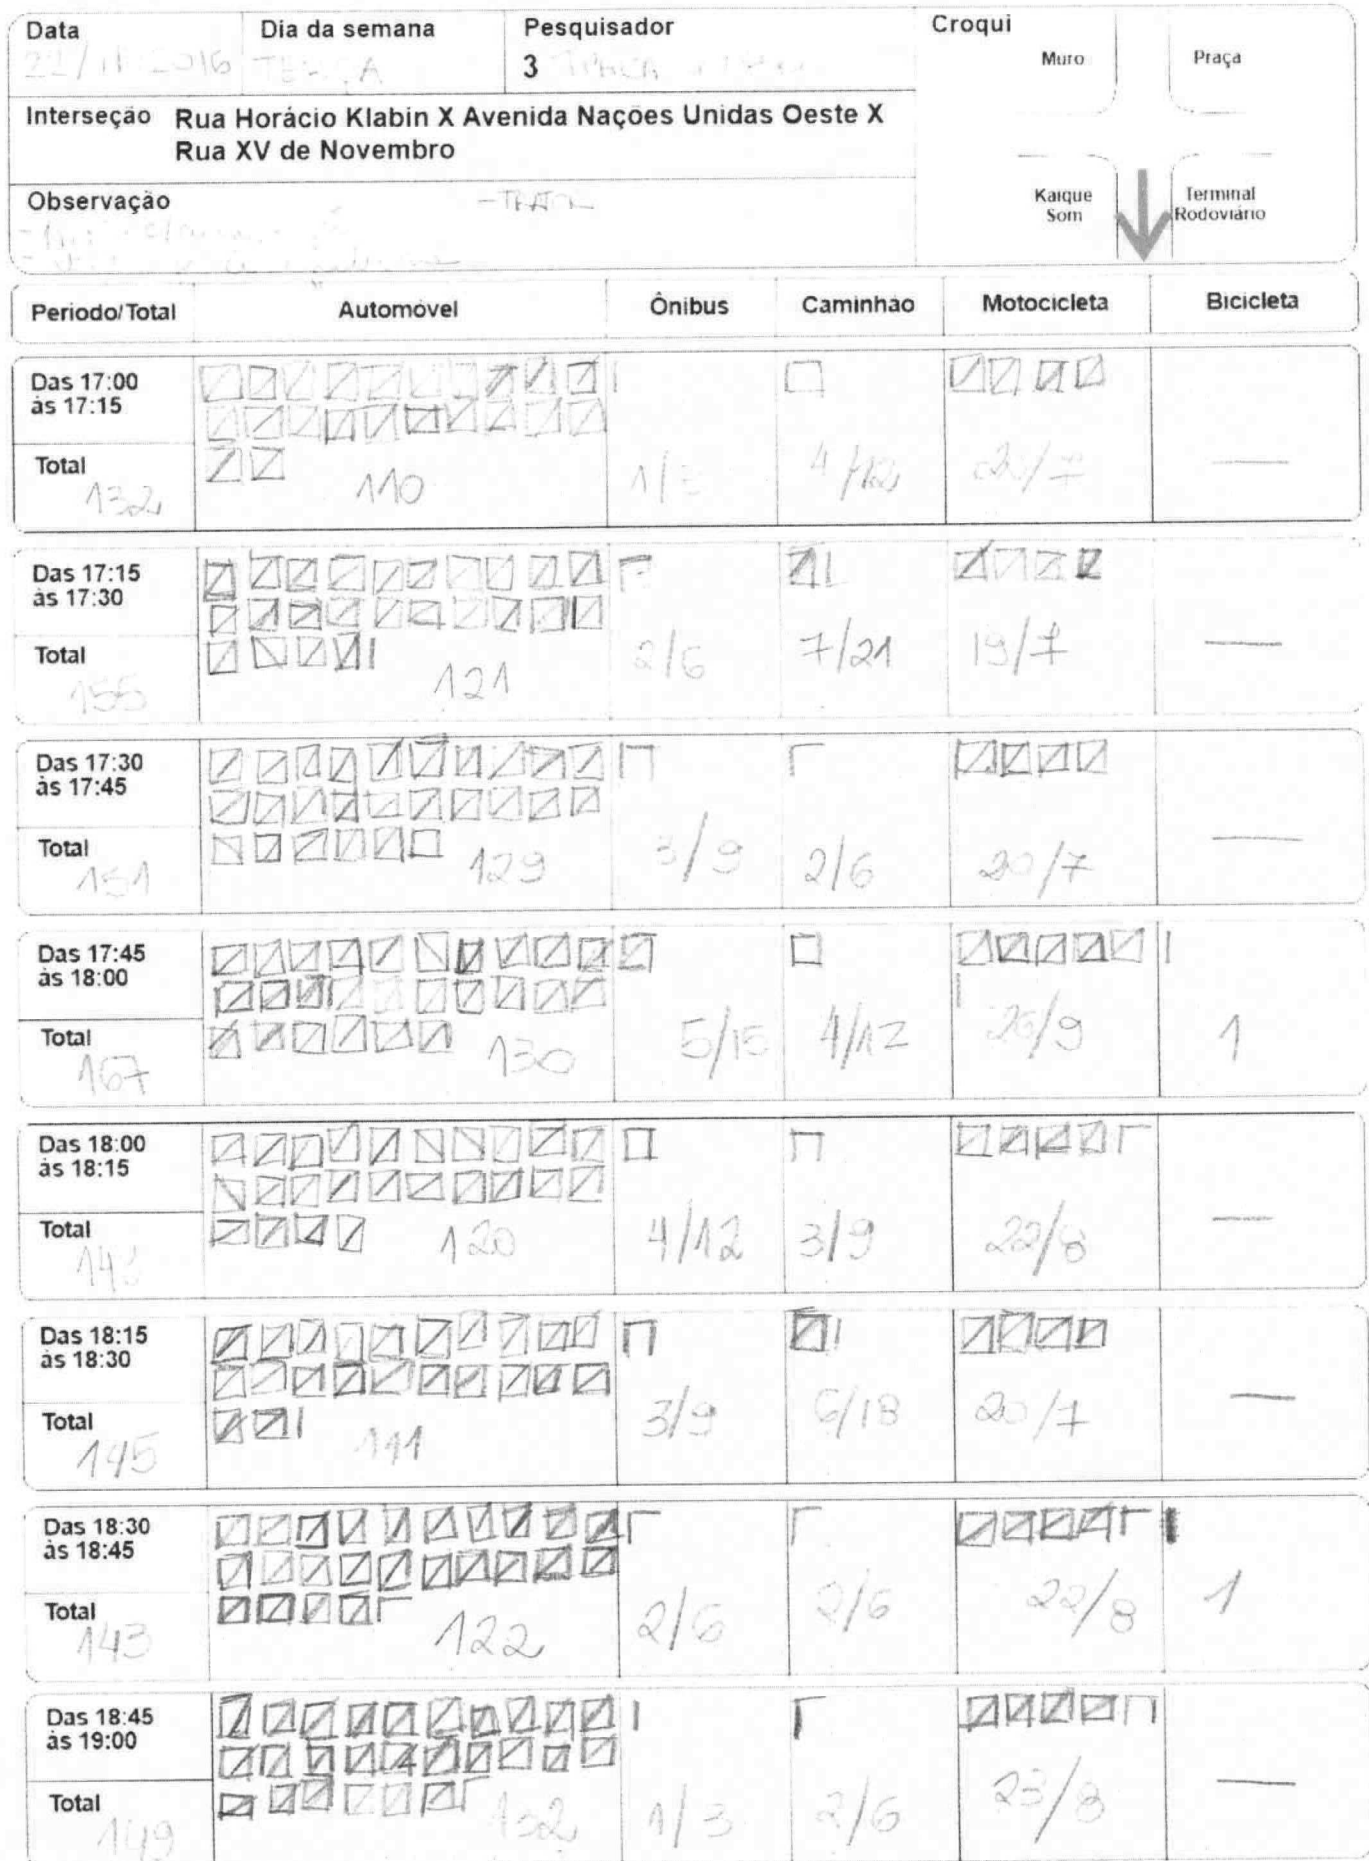 Data
Dia da semana
Pesquisador
Croqui
22/11/2016 TERÇA
3
Muro
Praça
Interseção Rua Horácio Klabin X Avenida Nações Unidas Oeste X
Rua XV de Novembro
Observação
Kaique
Som
Terminal
Rodoviário
Período/Total Automóvel Ônibus Caminhão Motocicleta Bicicleta
Das 17:00
às 17:15
Total
132 110 1/3 4/12 /7 —
Das 17:15
às 17:30
Total
155 121 2/6 7/21 19/7 —
Das 17:30
às 17:45
Total
151 129 3/9 2/6 20/7 —
Das 17:45
às 18:00
Total
167 130 5/15 4/12 26/9 1
Das 18:00
às 18:15
Total
120 4/12 3/9 22/8 —
Das 18:15
às 18:30
Total
145 111 3/9 6/18 20/7 —
Das 18:30
às 18:45
Total
143 122 2/6 2/6 22/8 1
Das 18:45
às 19:00
Total
149 132 1/3 2/6 23/8 —